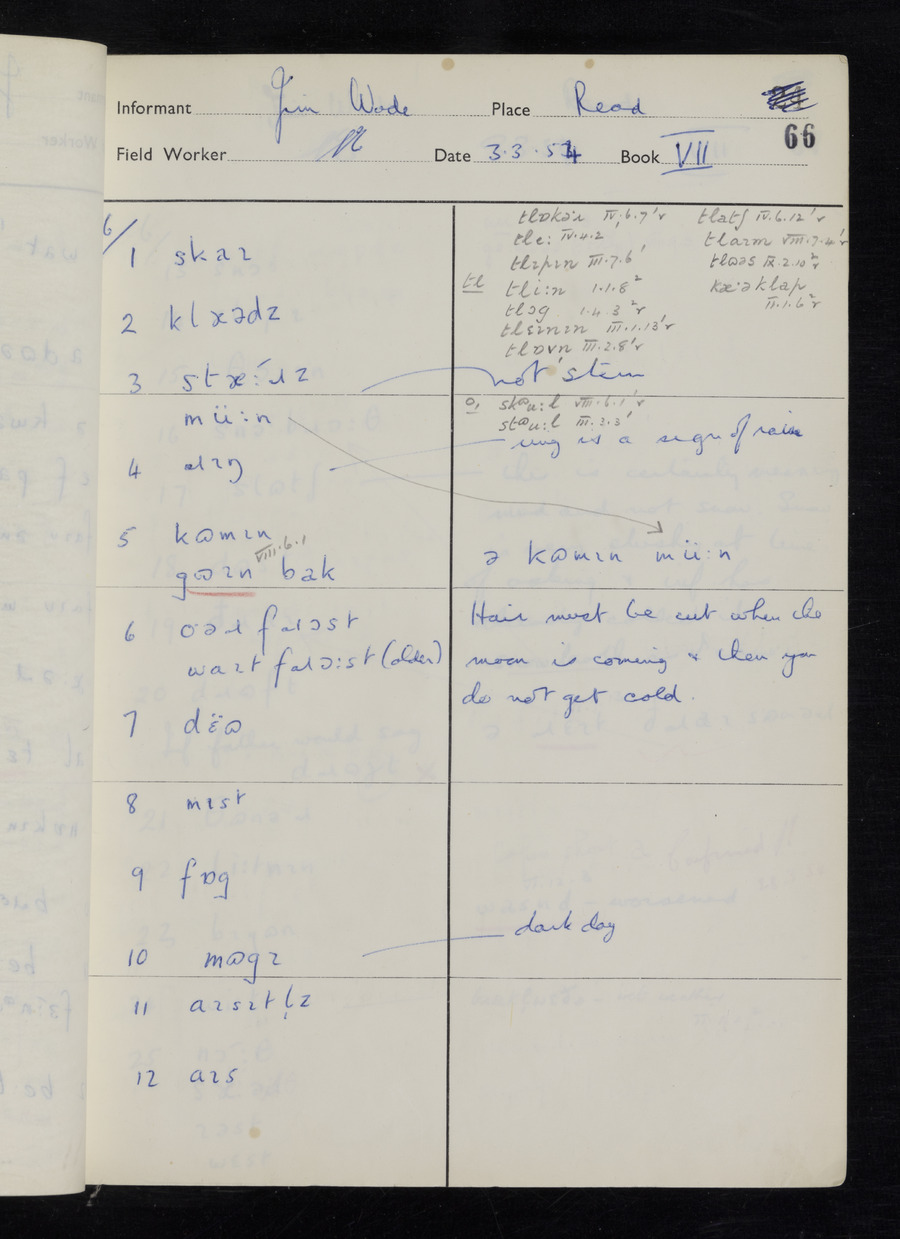 Informant Jim Wade Place Read
66
Field Worker Date 3.3.54 Book VII
6/
1 skaɪ
2 klɛədz
3 stæ:ɹz
mü:n
4 ɹɪŋ
5 kɷmɪn
VIII.6.1
gɷɪn bak
6 ɔəɹ fɹɔst
waɪt fɹɔ:st (older)
7 dɛ̈ɷ
8 mɪst
9 fɒg
10 mɷgɪ
11 aɪsɪtl̩z
12 aɪs
tlɒkəɪ IV.6.7'r
tle: IV.4.2
tlɪpɪn III.7.6'
tl
tli:n 1.1.8²
tlɔg 1.4.3²r
tlɛɪnɪn III.1.13'r
tlɒvn III.2.8'r
tlatʃ IV.6.12'r
tlaɪm VIII.7.4'r
tlɷəs IX.2.10²r
kæ:əklap
II.1.6²r
not stem
skɷu:l VIII.6.1'r
stɷu:l III.3.3'
ring is a sign of rain
ə kɷmɪn mü:n
Hair must be cut when the
moon is coming & then you
do not get cold.
dark day